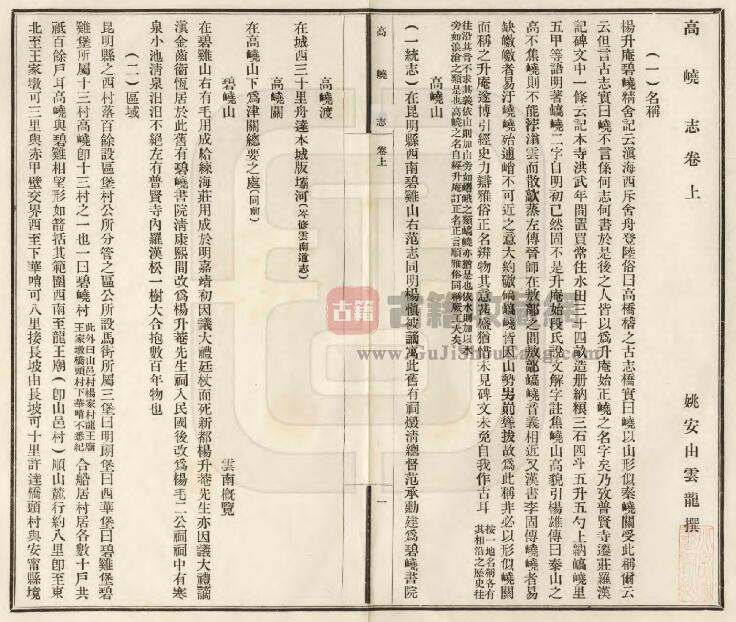 高嶢志卷上
姚安由雲龍撰
（一）名稱
楊升庵碧嶢精舍記云滇海西斥舍舟登陸俗曰高橋稽之古志橋實曰嶢以山形似秦嶢關受此稱爾云
云但言古志實曰嶢不言係何志何書於是後之人皆以爲升庵始正嶢之名字矣乃攷普賢寺遷莊羅漢
記碑文中一條云記本寺洪武年間置買常住水田三十四畝造册納糧三石四斗五升五勺上納嶢里
五甲等語明著嶢二字自明初已然固不是升庵始段氏說文解字註焦嶢山高貌引楊雄傳曰泰山之
高不焦嶢則不能浡滃雲而散歊蒸左傳晉師在敖鄗之間敖鄗嶢音義相近又漢書李固傳嶢嶢者易
缺皦皦者易汙嶢嶢殆逋峭不可近之意大約嶢嶢皆因山勢聳拔故爲此稱非必以形似嶢關
而稱之升庵遂博引經史力辯雅俗正名辨物其意甚盛猶惜未見碑文未免自我作古耳
按一地名稱各有其相沿之歷史往
往沿其音不求其義依山則加山旁如之類嶢亦猶是也依水則加以水
旁如浪滄之類是也高嶢之名自經升庵訂正名正言順雅俗同稱厥工大矣
高嶢山
（一統志）在昆明縣西南碧雞山右范志同明楊愼被謫寓此舊有祠燬淸總督范承勳建爲碧嶢書院
高嶢志
卷上
一
高嶢渡
在城西三十里舟達本城版壩河（岑修雲南道志）
高嶢關
在高嶢山下爲津關總要之處（同前）
碧嶢山
雲南槪覽
在碧雞山右有毛用成給練海莊用成於明嘉靖初因議大禮廷杖而死新都楊升菴先生亦因議大禮謫
滇金齒衞恆居於此舊有碧嶢書院淸康熙間改爲楊升菴先生祠入民國後改爲楊毛二公祠祠中有寒
泉小池淸泉汨汨不絕左有普賢寺內羅漢松一樹大合抱數百年物也
（二）區域
昆明縣之西村落百餘設區堡村公所分管之區公所設馬街所屬三堡曰明朗堡曰西華堡曰碧雞堡碧
雞堡所屬十三村高嶢卽十三村之一也一曰碧嶢村
此外曰山邑村楊家村龍王廟
王家墩橋頭村下華嘴不悉紀
合船居村居各數十戶共
祇百餘戶耳高嶢與碧雞相望形如箭括其範圍西南至龍王廟（卽山邑村）順山麓行約八里卽至東
北至王家墩可三里與赤甲壁交界西至下華嘴可八里接長坡由長坡可十里許達橋頭村與安富縣境
古籍收藏網
www.GuJiShuCang.com